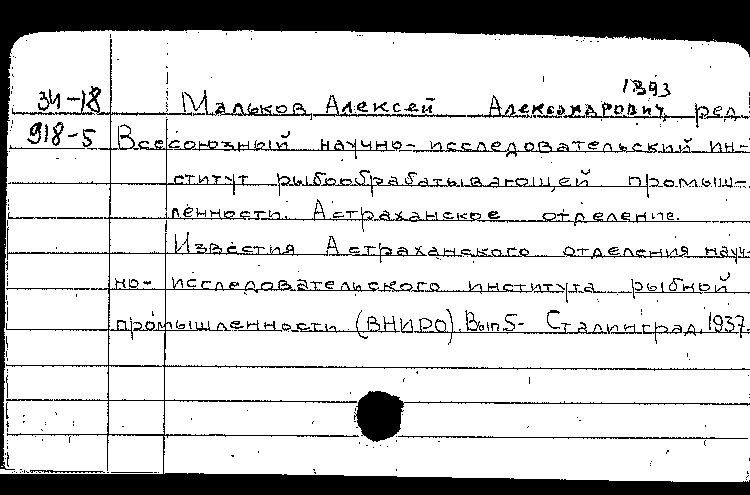 1893
34-18 Мальков, Алексей Александрович, ред.
918-5 Всесоюзный научно-исследовательский ин-
ститут рыбообрабатывающей промыш-
ленности. Астраханское отделение.
Известия Астраханского отделения науч-
но-исследовательского института рыбной
промышленности (ВНИРО). Вып5- Сталинград, 1937.